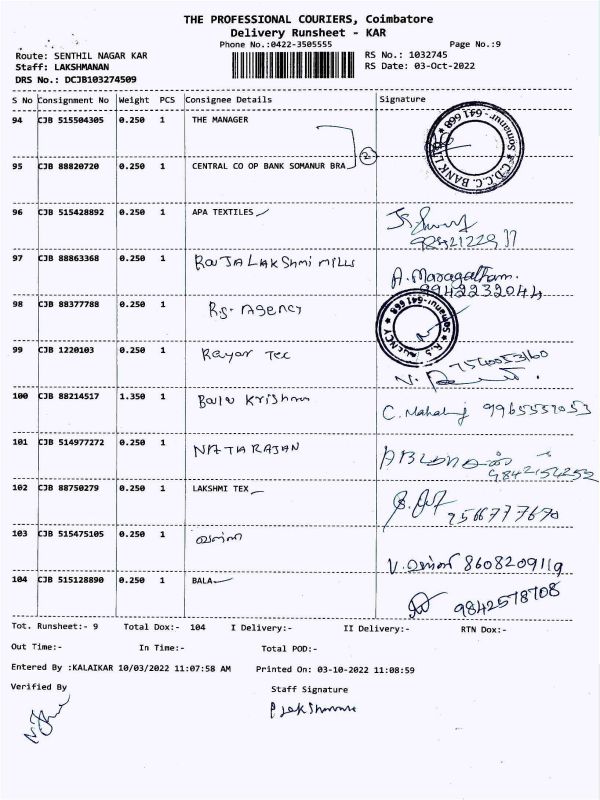 THE PROFESSIONAL COURIERS, Coimbatore
Delivery Runsheet - KAR
Phone No.:0422-3505555
Page No.:9
Route: SENTHIL NAGAR KAR
RS No.: 1032745
Staff: LAKSHMANAN
RS Date: 03-Oct-2022
DRS No.: DCJB103274509
S No Consignment No Weight PCS Consignee Details Signature
94 CJB 515504305 0.250 1 THE MANAGER
95 CJB 88820720 0.250 1 CENTRAL CO OP BANK SOMANUR BRA 2
C.D.C.C. BANK LTD Somanur-641 668
96 CJB 515428892 0.250 1 APA TEXTILES
97 CJB 88863368 0.250 1 RAJALAKSHMI MILLS
A. Maragatham.
9942232044
98 CJB 88377788 0.250 1 R.S. AGENCY
R.S AGENCY Somanur-641 668
99 CJB 1220103 0.250 1 Rayar Tec
7540053160
100 CJB 88214517 1.350 1 Bala Krishnan
C. Mahali 9965557053
101 CJB 514977272 0.250 1 NATARAJAN
9842154252
102 CJB 88750279 0.250 1 LAKSHMI TEX
7566777670
103 CJB 515475105 0.250 1
8608209119
104 CJB 515128890 0.250 1 BALA
9842578708
Tot. Runsheet:- 9 Total Dox:- 104 I Delivery:- II Delivery:- RTN Dox:-
Out Time:- In Time:- Total POD:-
Entered By :KALAIKAR 10/03/2022 11:07:58 AM Printed On: 03-10-2022 11:08:59
Verified By Staff Signature
P Lakshmanan